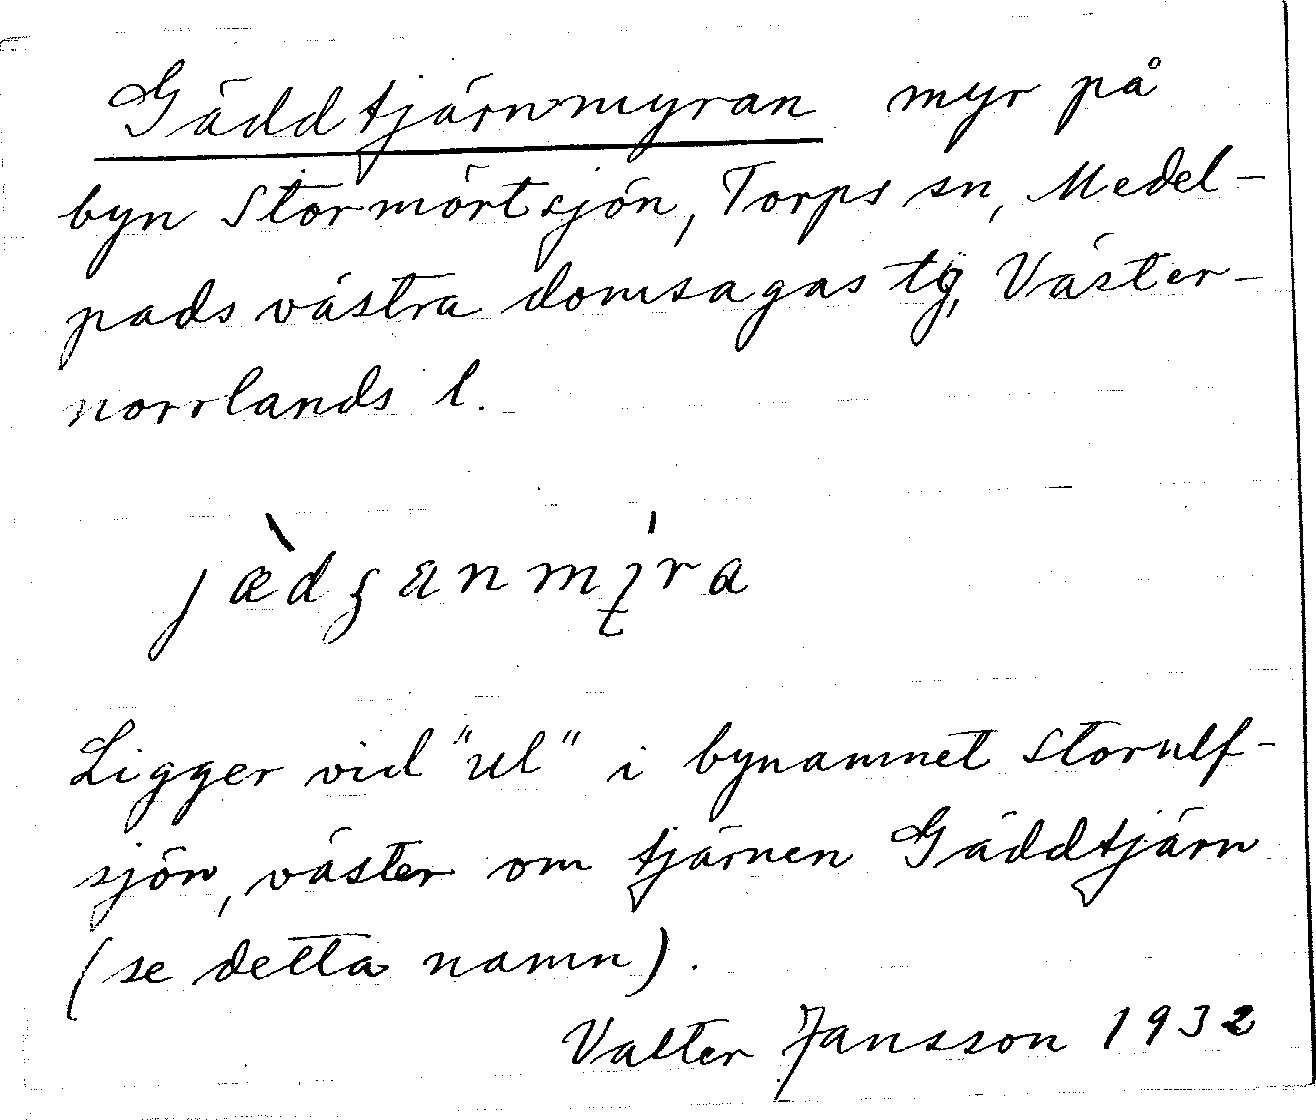 Gäddtjärnmyran myr på
byn Stormörtsjön, Torps sn, Medel-
pads västra domsagas tg, Väster-
norrlands l.
jæ̀dʒænmı̨́ra
Ligger vid "ul" i bynamnet Storulf-
sjön, väster om tjärnen Gäddtjärn
(se detta namn).
Valter Jansson 1932